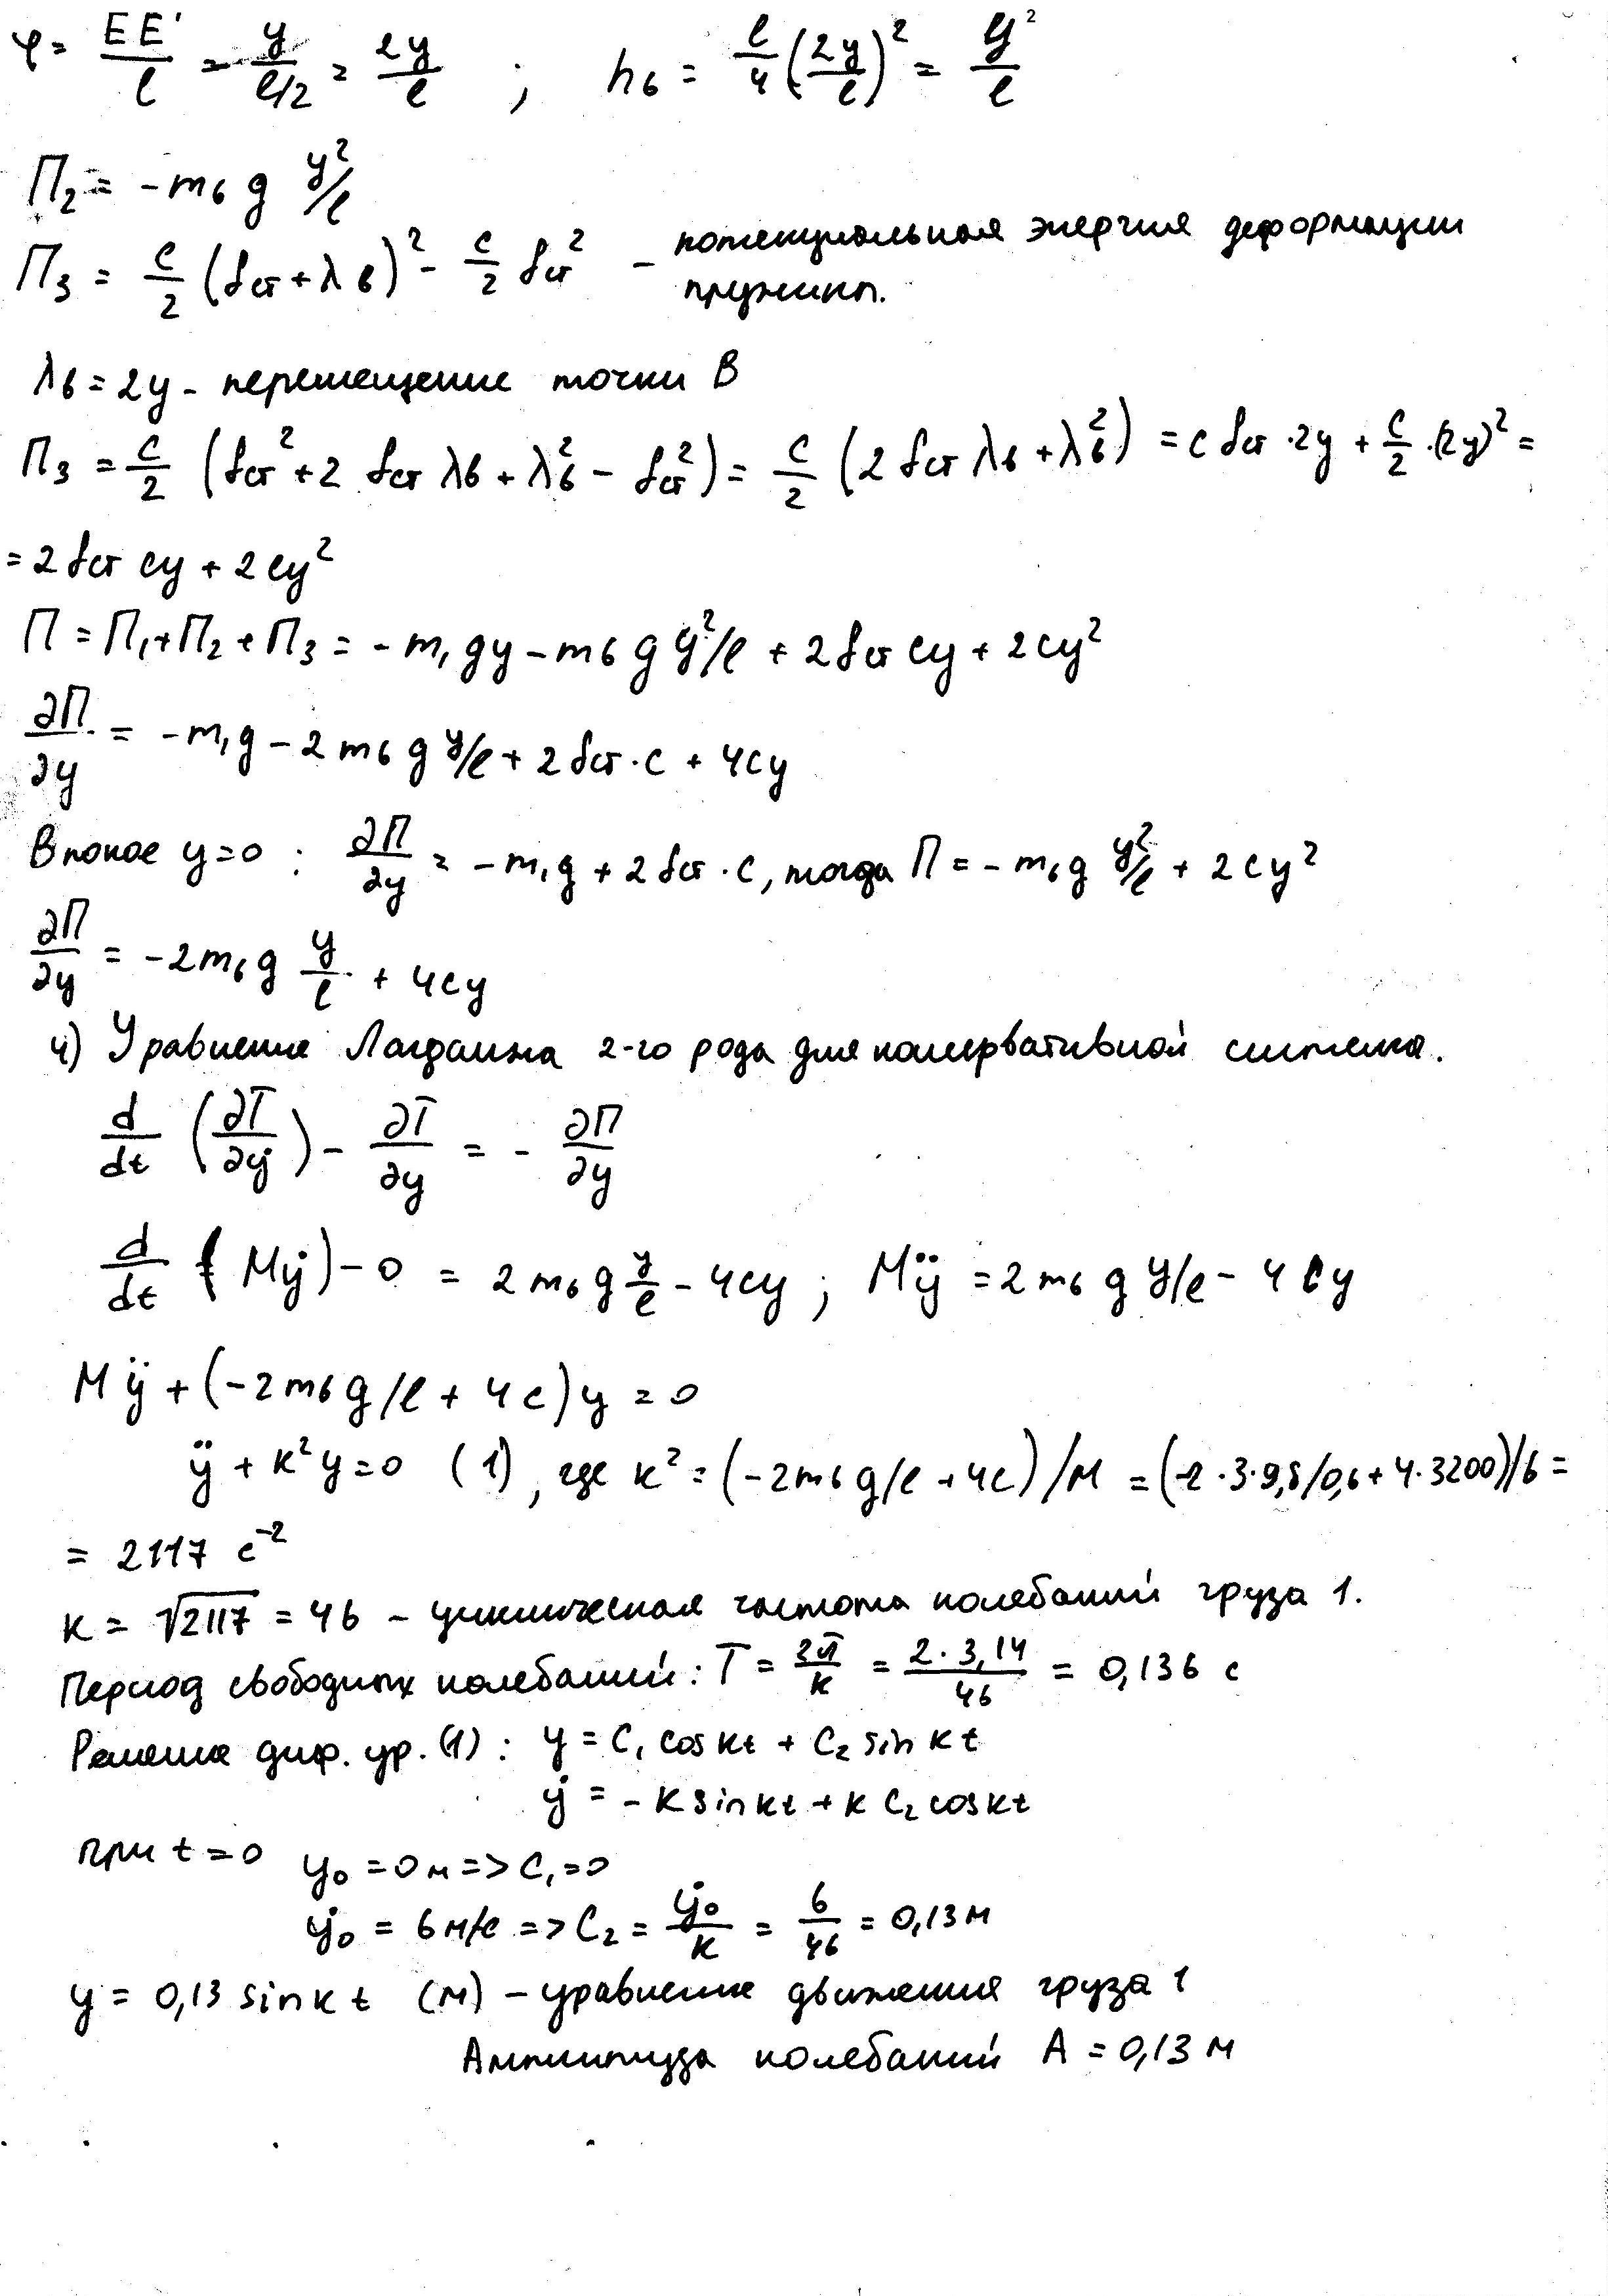 φ = EE'/l = y/(l/2) = 2y/l ; h₆ = l/4 (2y/l)² = y²/l
П₂ = -m₆g y²/l
П₃ = c/2 (fст + λв)² - c/2 fст² - потенциальная энергия деформации
пружины.
λв = 2y - перемещение точки В
П₃ = c/2 (fст² + 2 fст λв + λв² - fст²) = c/2 (2 fст λв + λв²) = c fст · 2y + c/2 · (2y)² =
= 2 fст cy + 2cy²
П = П₁ + П₂ + П₃ = - m₁gy - m₆g y²/l + 2 fст cy + 2cy²
∂П/∂y = -m₁g - 2m₆g y/l + 2 fст · c + 4cy
В покое y=0 : ∂П/∂y = -m₁g + 2 fст · c, тогда П = - m₆g y²/l + 2cy²
∂П/∂y = -2m₆g y/l + 4cy
4) Уравнение Лагранжа 2-го рода для консервативной системы.
d/dt (∂T/∂ẏ) - ∂T/∂y = - ∂П/∂y
d/dt (Mẏ) - 0 = 2m₆g y/l - 4cy ; Mÿ = 2m₆g y/l - 4cy
Mÿ + (-2m₆g/l + 4c)y = 0
ÿ + k²y = 0 (1), где k² = (-2m₆g/l + 4c)/M = (-2·3·9,8/0,6 + 4·3200)/6 =
= 2117 c⁻²
k = √2117 = 46 - циклическая частота колебаний груза 1.
Период свободных колебаний: T = 2π/k = 2·3,14/46 = 0,136 с
Решение диф. ур. (1) : y = C₁ cos kt + C₂ sin kt
ẏ = - k sin kt + k C₂ cos kt
при t = 0 y₀ = 0 м => C₁ = 0
ẏ₀ = 6 м/с => C₂ = ẏ₀/k = 6/46 = 0,13 м
y = 0,13 sin kt (м) - уравнение движения груза 1
Амплитуда колебаний A = 0,13 м